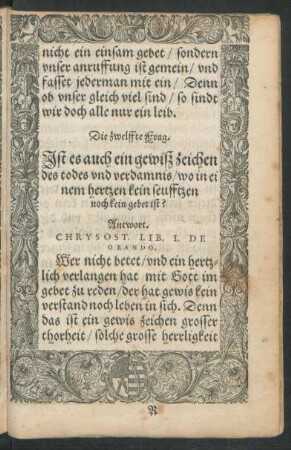 nicht ein einsam gebet / sondern
vnser anruffung ist gemein / vnd
fasset jederman mit ein / Denn
ob vnser gleich viel sind / so sindt
wir doch alle nur ein leib.
Die zwelffte Frag.
Ist es auch ein gewisz zeichen
des todes vnd verdamnis / wo in ei
nem hertzen kein seufftzen
noch kein gebet ist?
Antwort.
CHRYSOST. LIB. I. DE
ORANDO.
Wer nicht betet / vnd ein hertz-
lich verlangen hat mit Gott im
gebet zu reden / der hat gewis kein
verstand noch leben in sich. Denn
das ist ein gewis zeichen grosser
thorheit / solche grosse herrligkeit
R